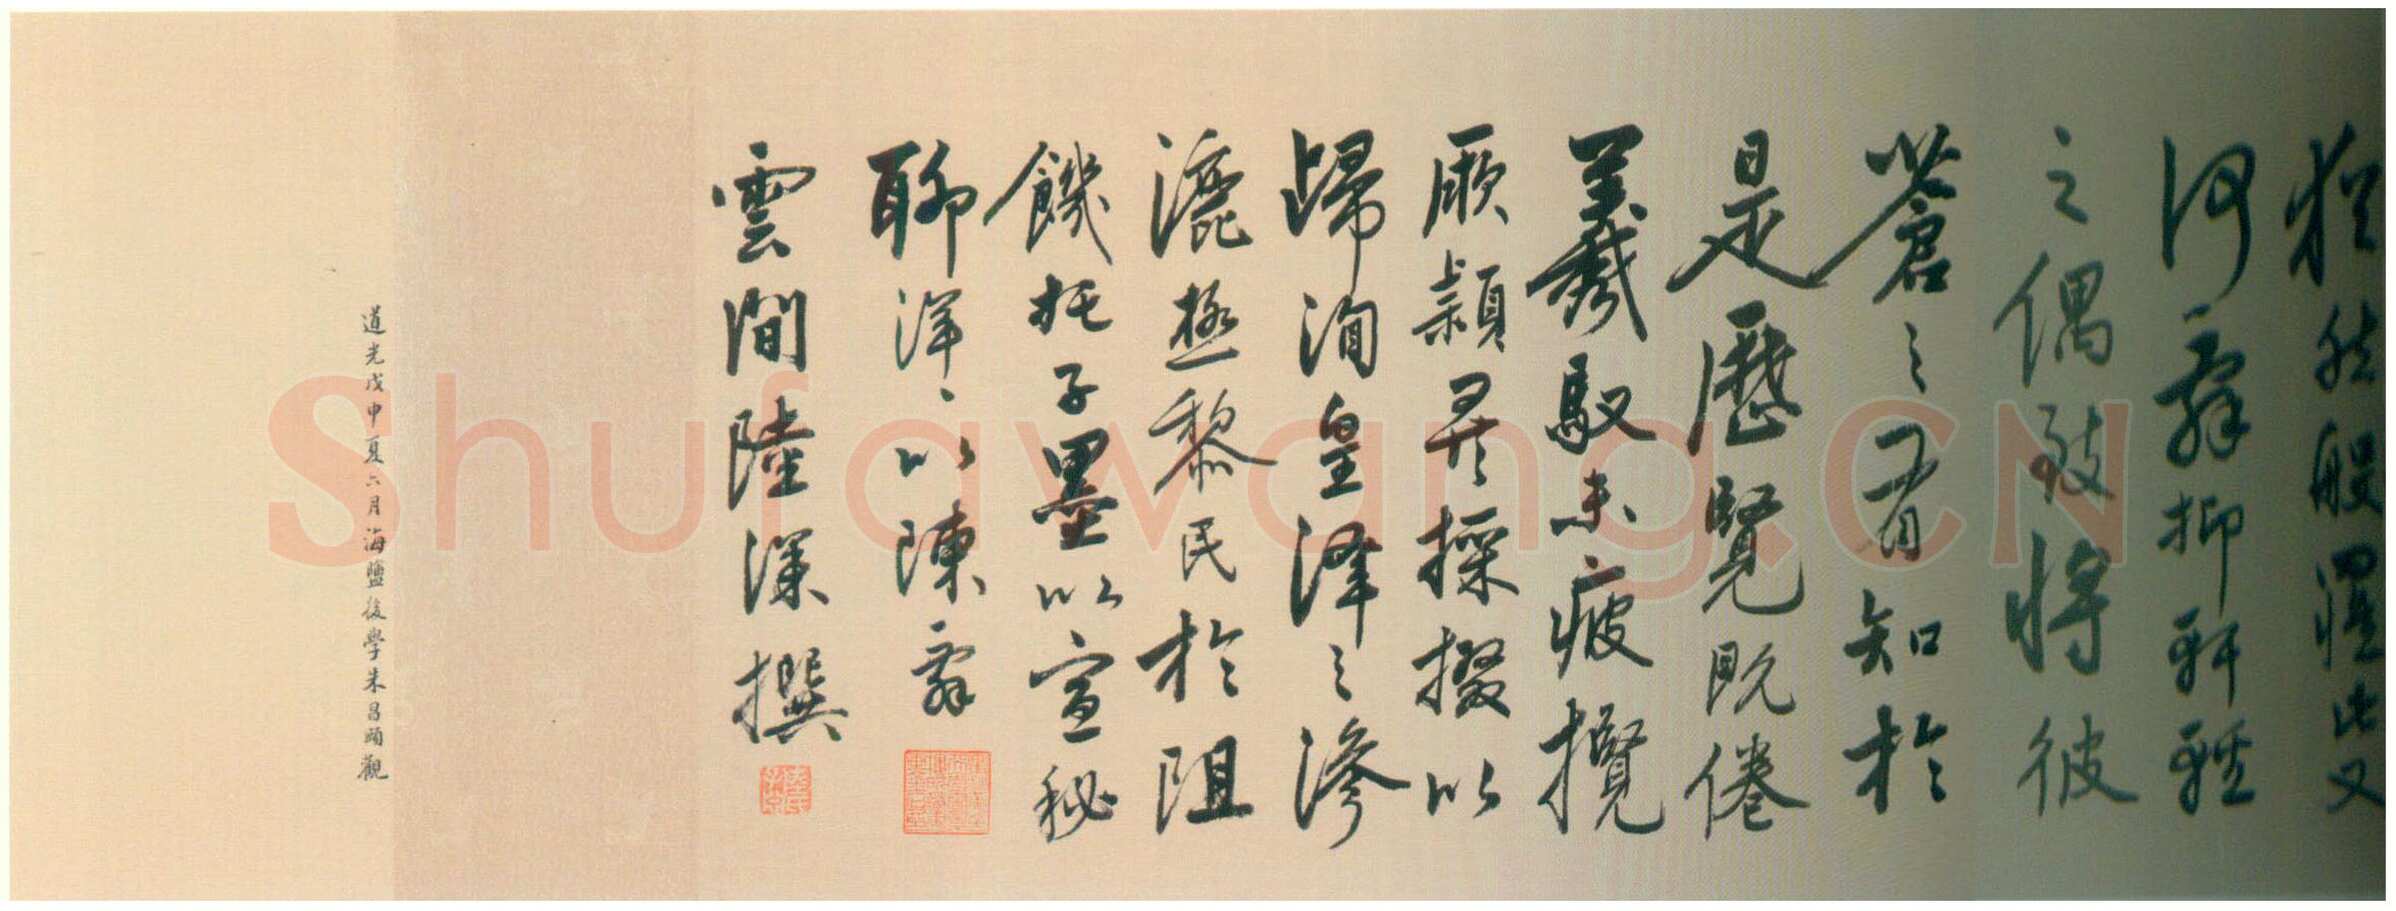 猶然般躍此又
何辭抑軒輊
之偶致將彼
蒼之有知於
是歷覽既倦
羲馭未疲攬
厥穎異採掇以
歸洵皇澤之滲
漉極黎民於阻
饑托子墨以宣秘
聊洋洋以陳辭
雲間陸深撰
道光戊申夏六月海鹽後學朱昌頤觀
Shufawang.CN